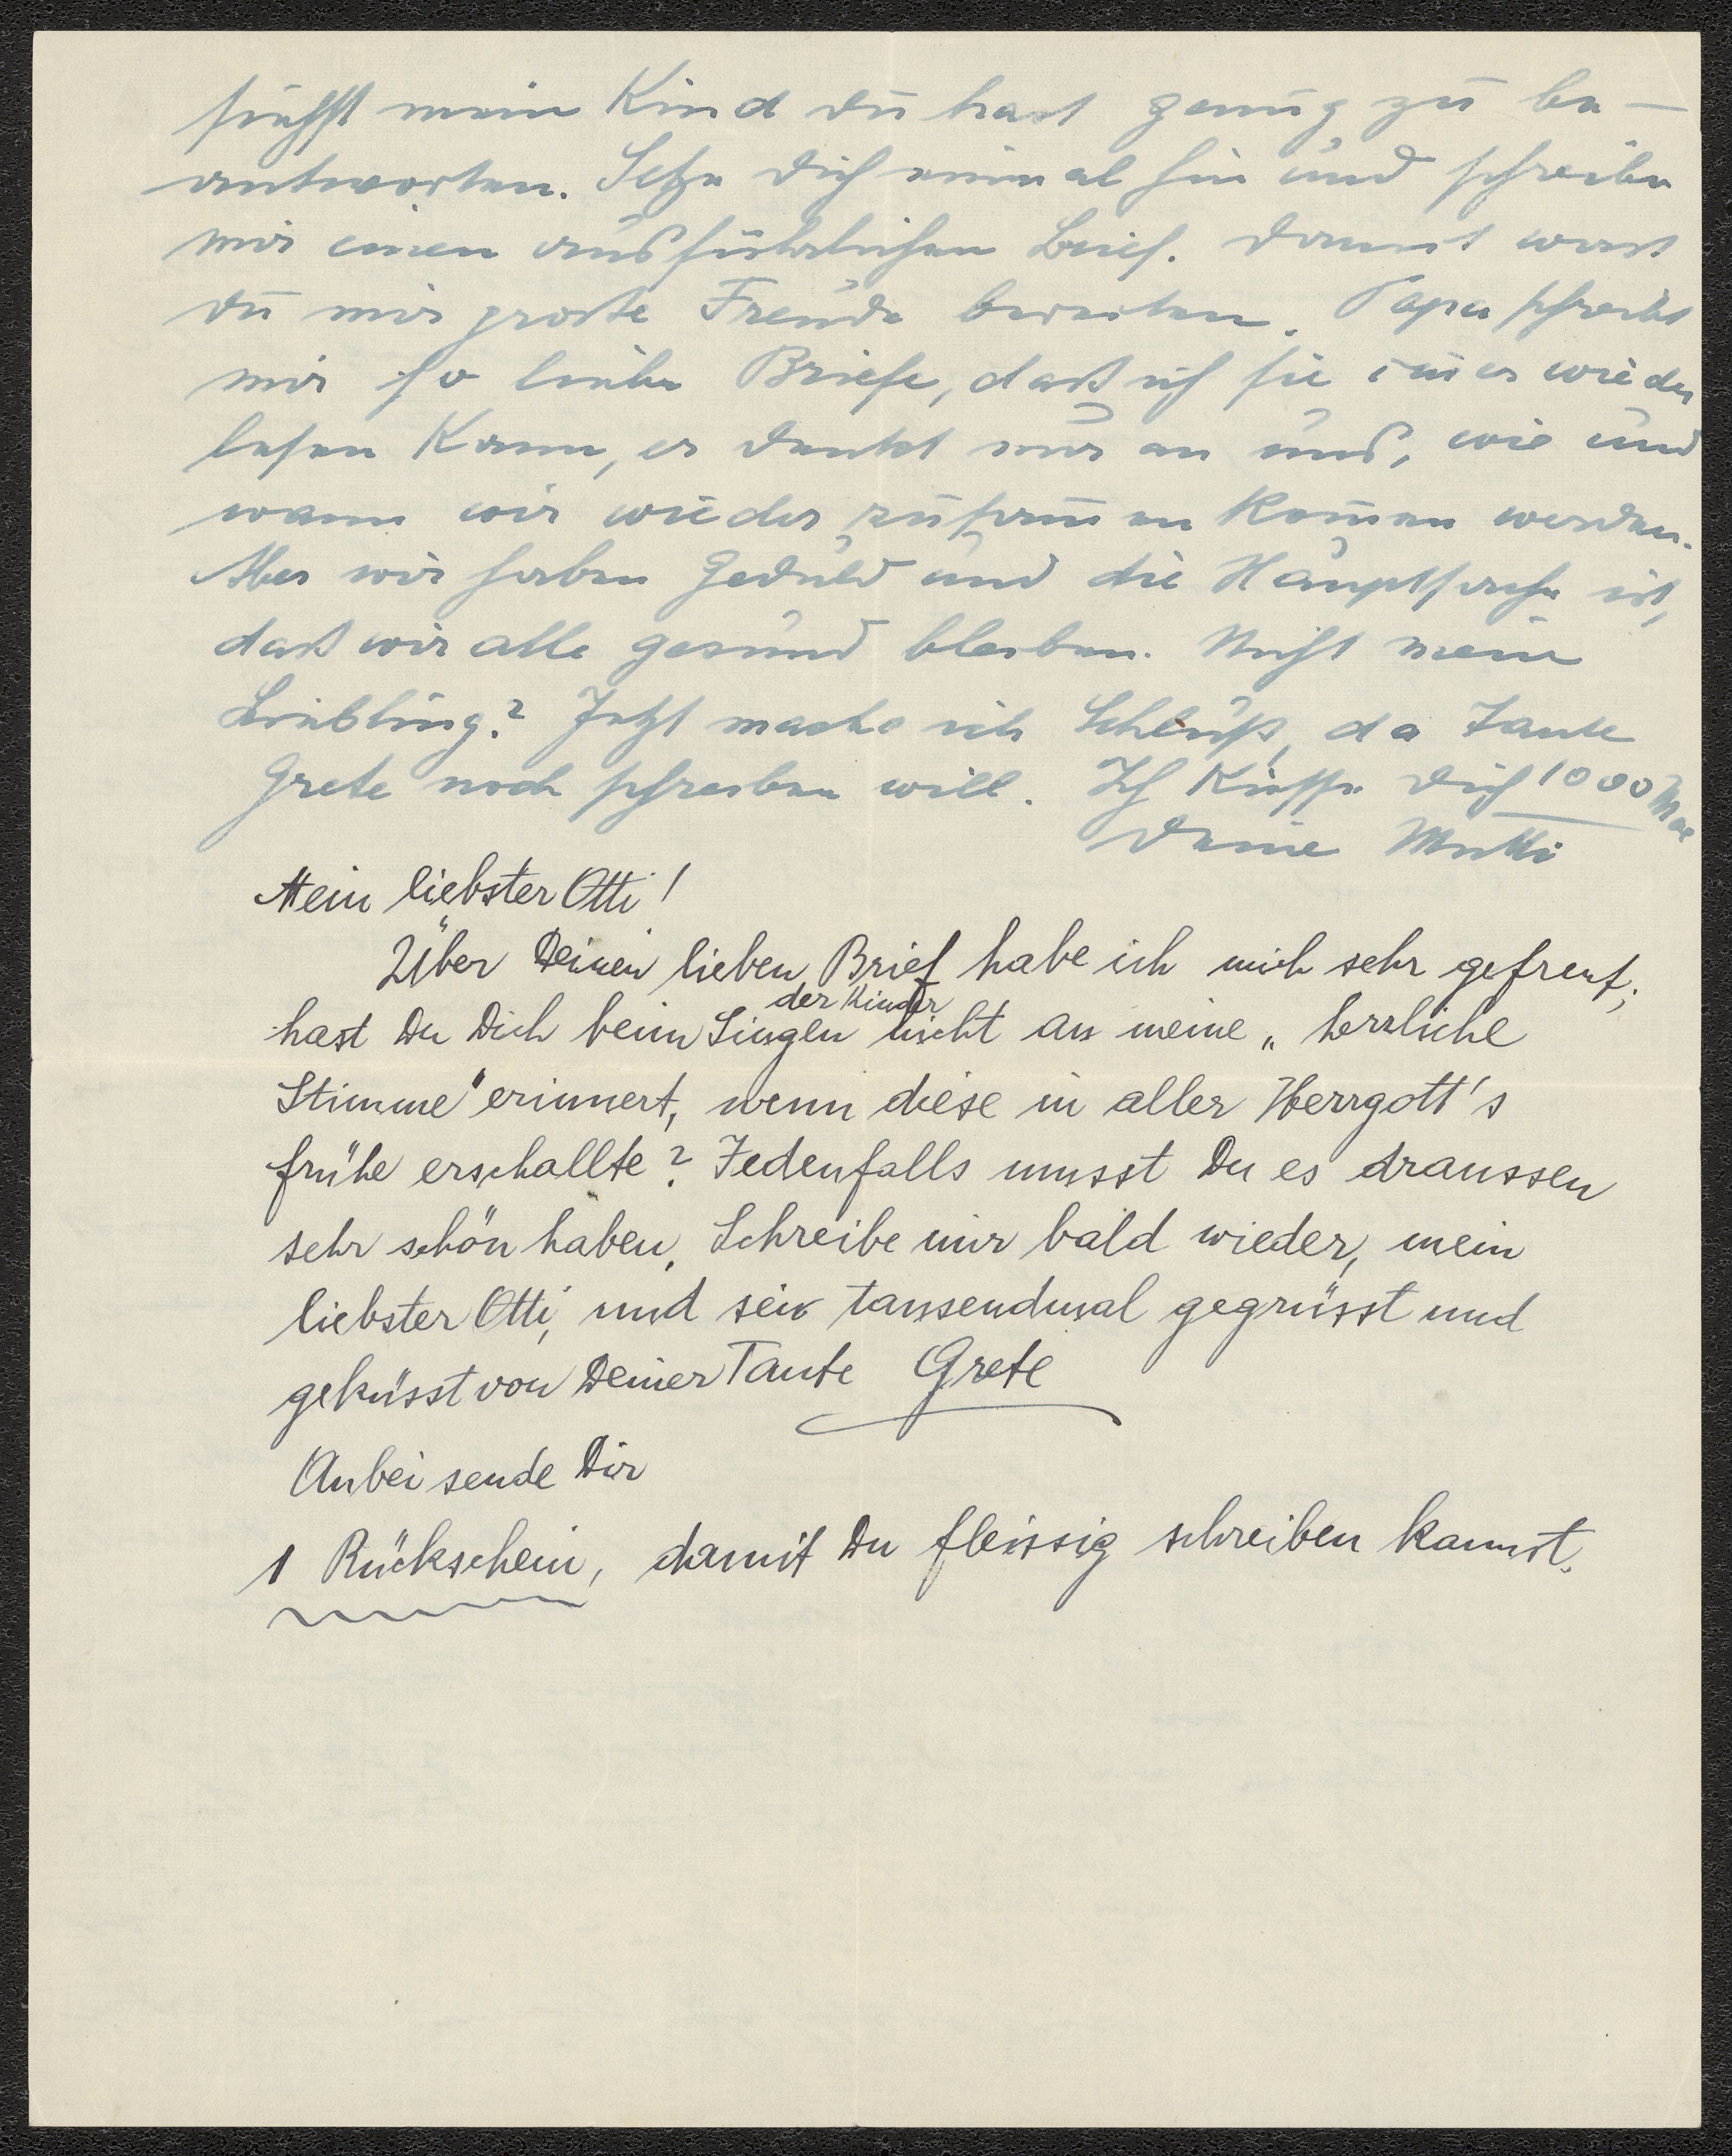 siehst mein Kind du hast genug zu be-
antworten. Setze dich einmal hin und schreibe
mir einen ausführlichen Brief. Damit wirst
du mir große Freude bereiten. Papa schreibt
mir so liebe Briefe, daß ich sie im̄er wieder
lesen kann, er denkt nur an uns, wie und
wann wir wieder zusam̄en kom̄en werden.
Aber wir haben Geduld und die Hauptsache ist,
daß wir alle gesund bleiben. Nicht mein
Liebling? Jetzt mache ich Schluß, da Tante
Grete noch schreiben will. Ich küsse dich 1000 Mal
Deine Mutti
Mein liebster Otti!
Über Deinen lieben Brief habe ich mich sehr gefreut;
hast Du Dich beim Singen der Kinder nicht an meine „herrliche
Stimme" erinnert, wenn diese in aller Herrgott's
frühe erschallte? Jedenfalls musst Du es draussen
sehr schön haben. Schreibe mir bald wieder, mein
liebster Otti, und sei tausendmal gegrüsst und
geküsst von Deiner Tante Grete
Anbei sende Dir
1 Rückschein, damit Du fleissig schreiben kannst.